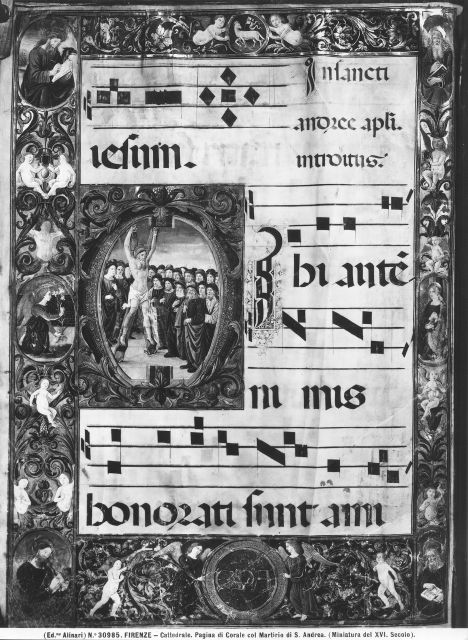 iesum.
In sancti
andree apli.
introitus.
Mihi antē
ni mis
honorati sunt ami
(Ed.ne Alinari) N.° 30985. FIRENZE – Cattedrale. Pagina di Corale col Martirio di S. Andrea. (Miniatura del XVI. Secolo).